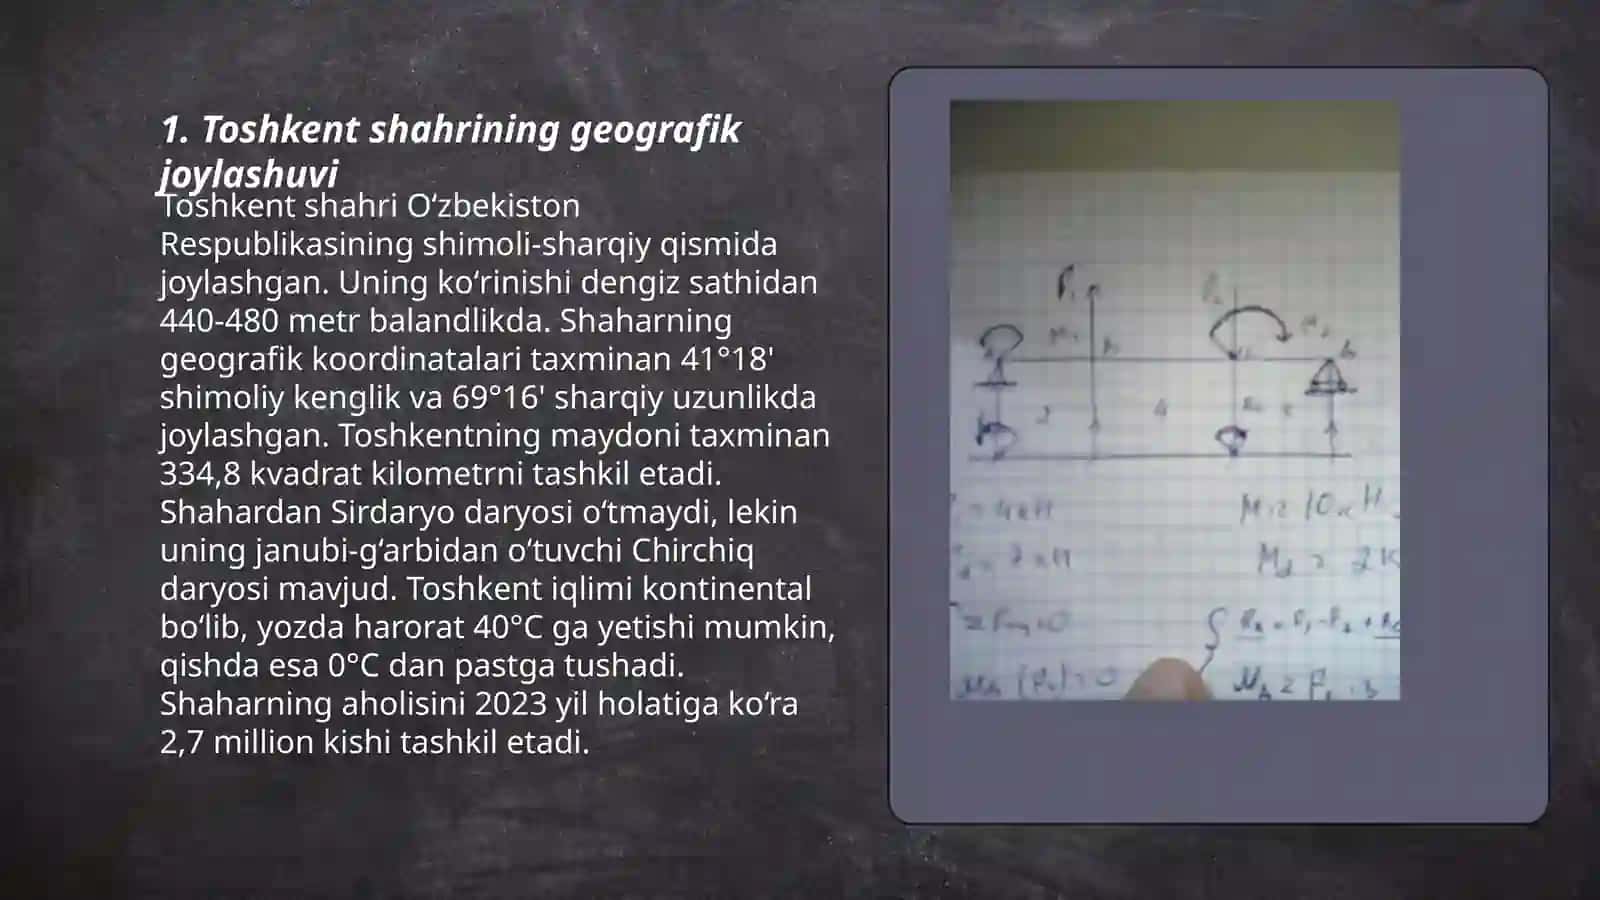 1. Toshkent shahrining geografik
joylashuvi
Toshkent shahri O‘zbekiston
Respublikasining shimoli-sharqiy qismida
joylashgan. Uning ko‘rinishi dengiz sathidan
440-480 metr balandlikda. Shaharning
geografik koordinatalari taxminan 41°18'
shimoliy kenglik va 69°16' sharqiy uzunlikda
joylashgan. Toshkentning maydoni taxminan
334,8 kvadrat kilometrni tashkil etadi.
Shahardan Sirdaryo daryosi o‘tmaydi, lekin
uning janubi-g‘arbidan o‘tuvchi Chirchiq
daryosi mavjud. Toshkent iqlimi kontinental
bo‘lib, yozda harorat 40°C ga yetishi mumkin,
qishda esa 0°C dan pastga tushadi.
Shaharning aholisini 2023 yil holatiga ko‘ra
2,7 million kishi tashkil etadi.